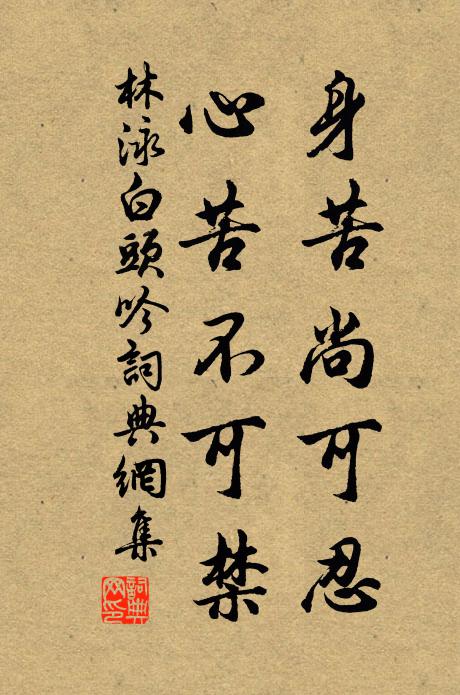 身苦尚可忍
心苦不可禁
林泳白頭吟詞典網集
詞典
网印